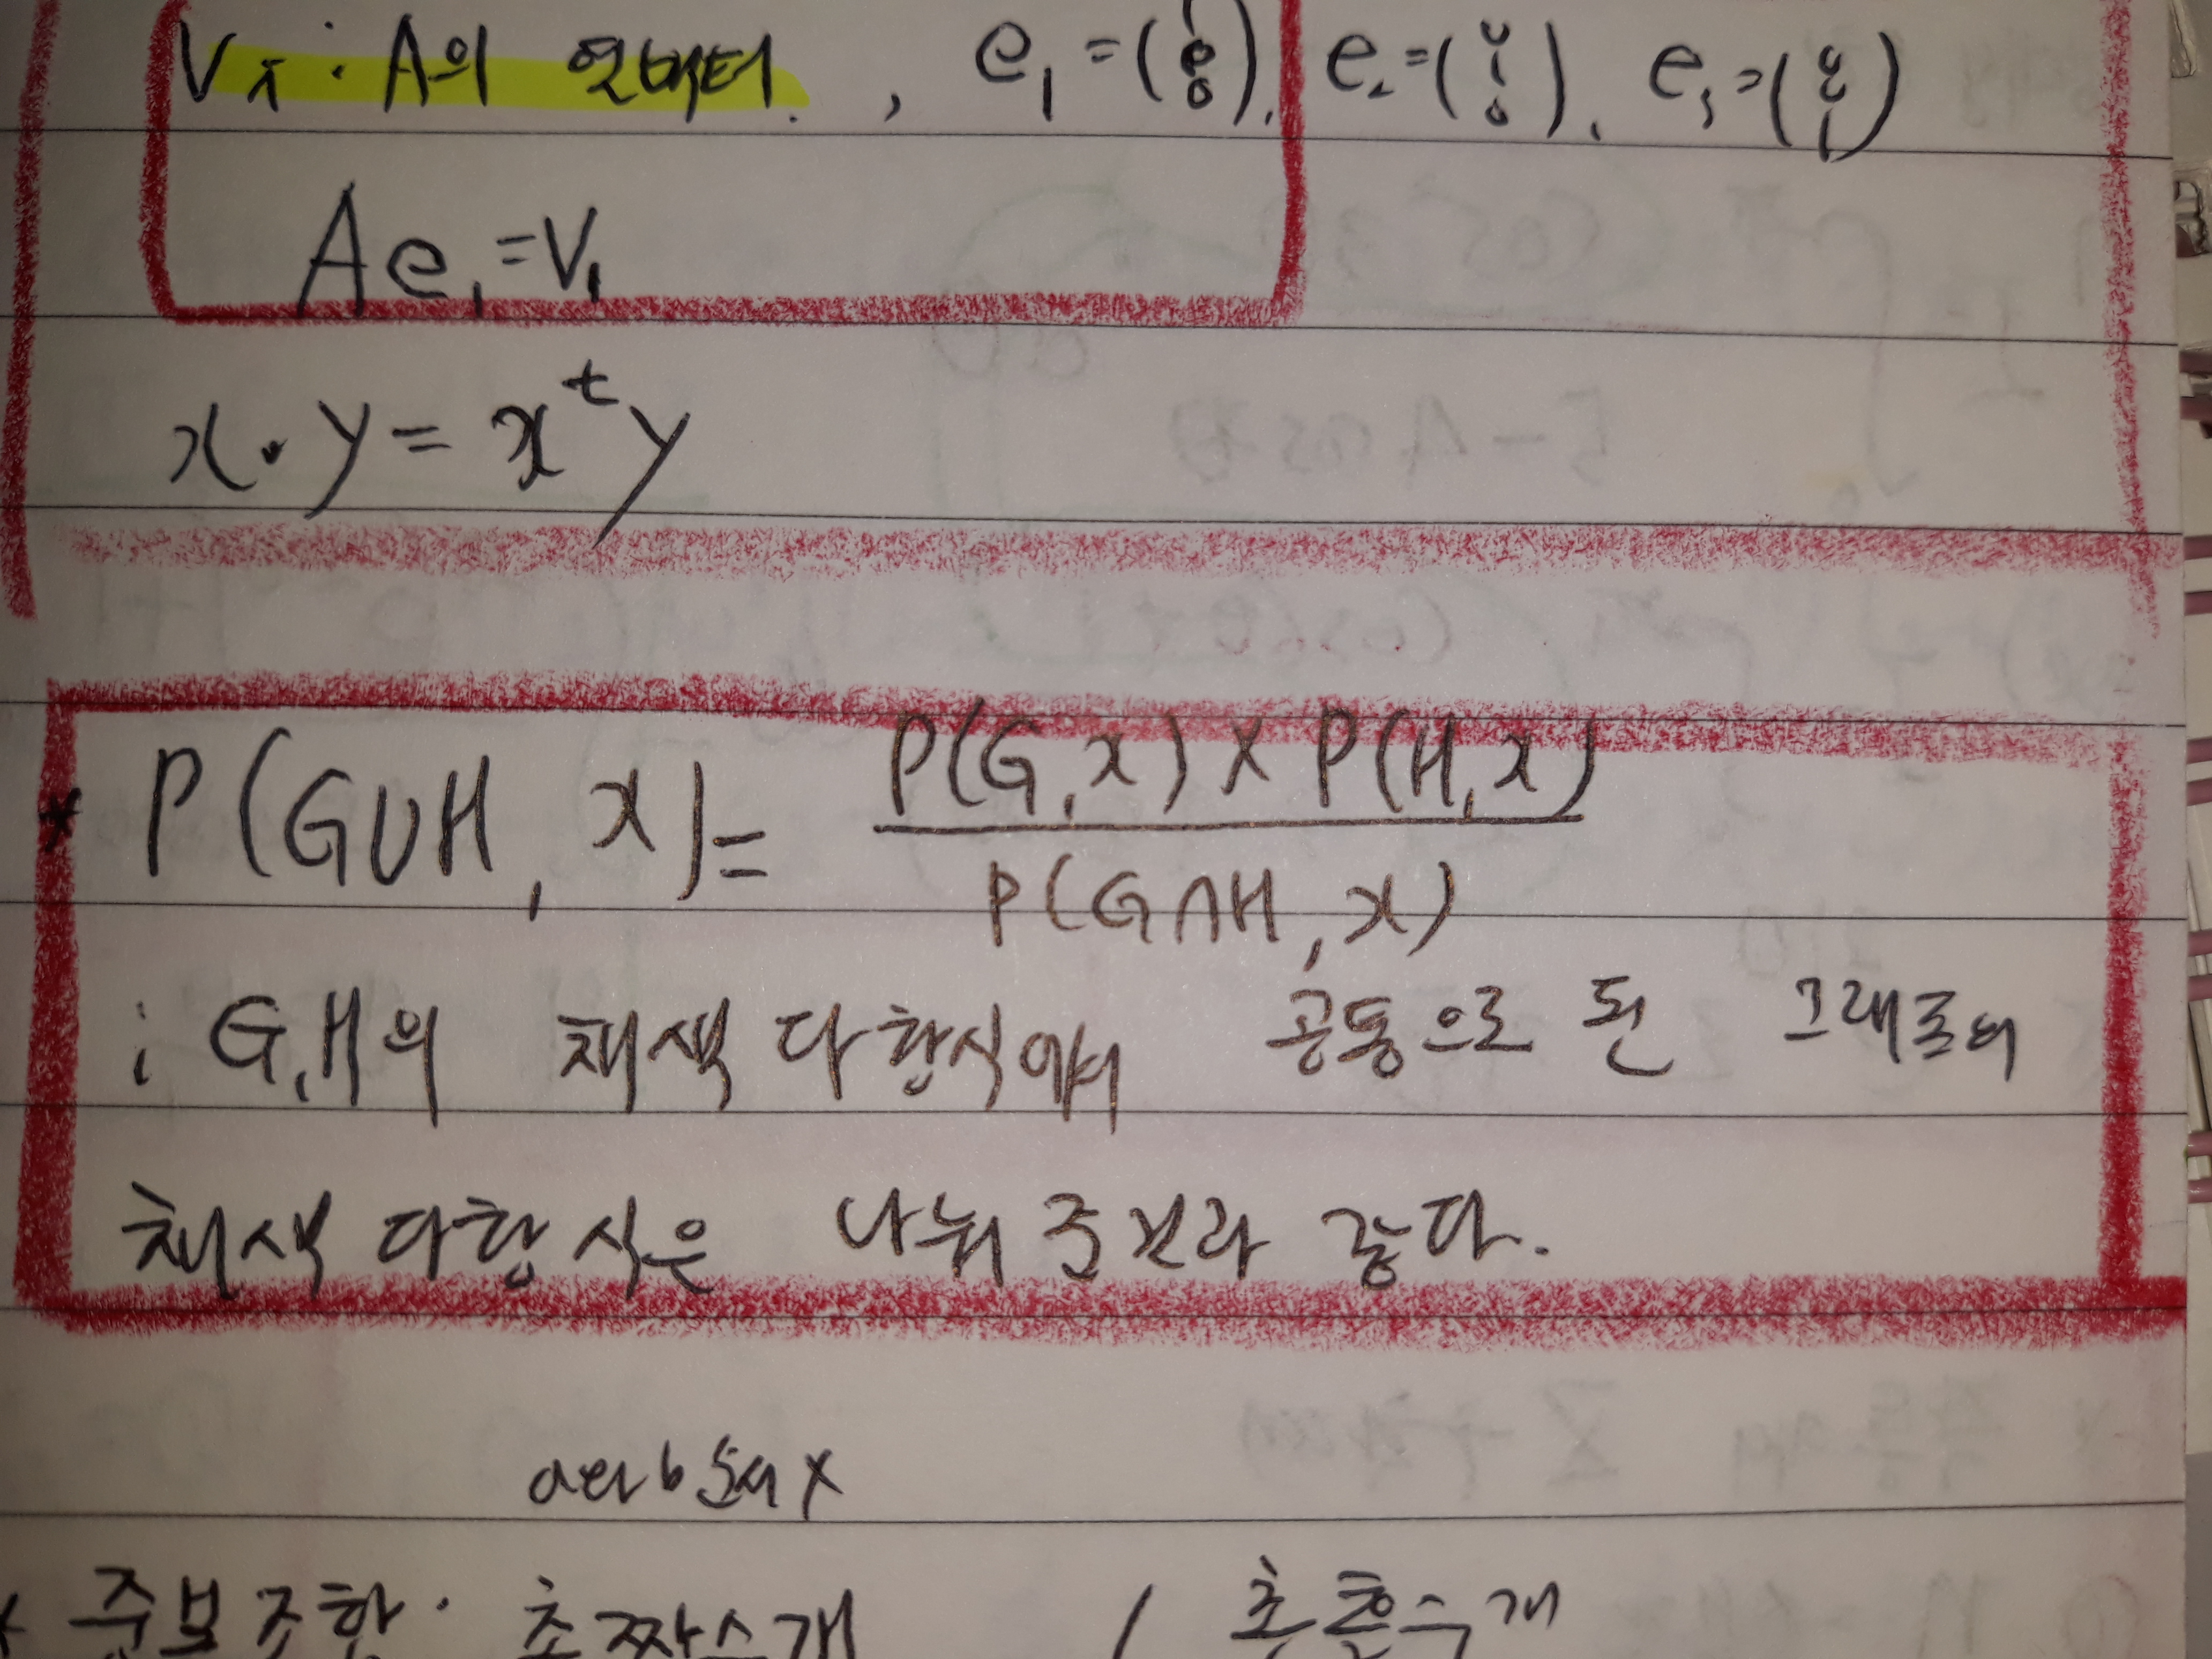 V_i : A의 열벡터. , e₁ = (1 0 0), e₂ = (0 1 0), e₃ = (0 0 1)
Ae₁ = V₁
x · y = xᵗy
* P(G∪H, x) = P(G,x) × P(H,x) / P(G∩H, x)
; G,H의 채색 다항식에서 공통으로 된 그래프의
채색 다항식은 나눠 준것과 같다.
a와 b 순서 x
* 중복조합 : 초짝수개 / 초홀수개